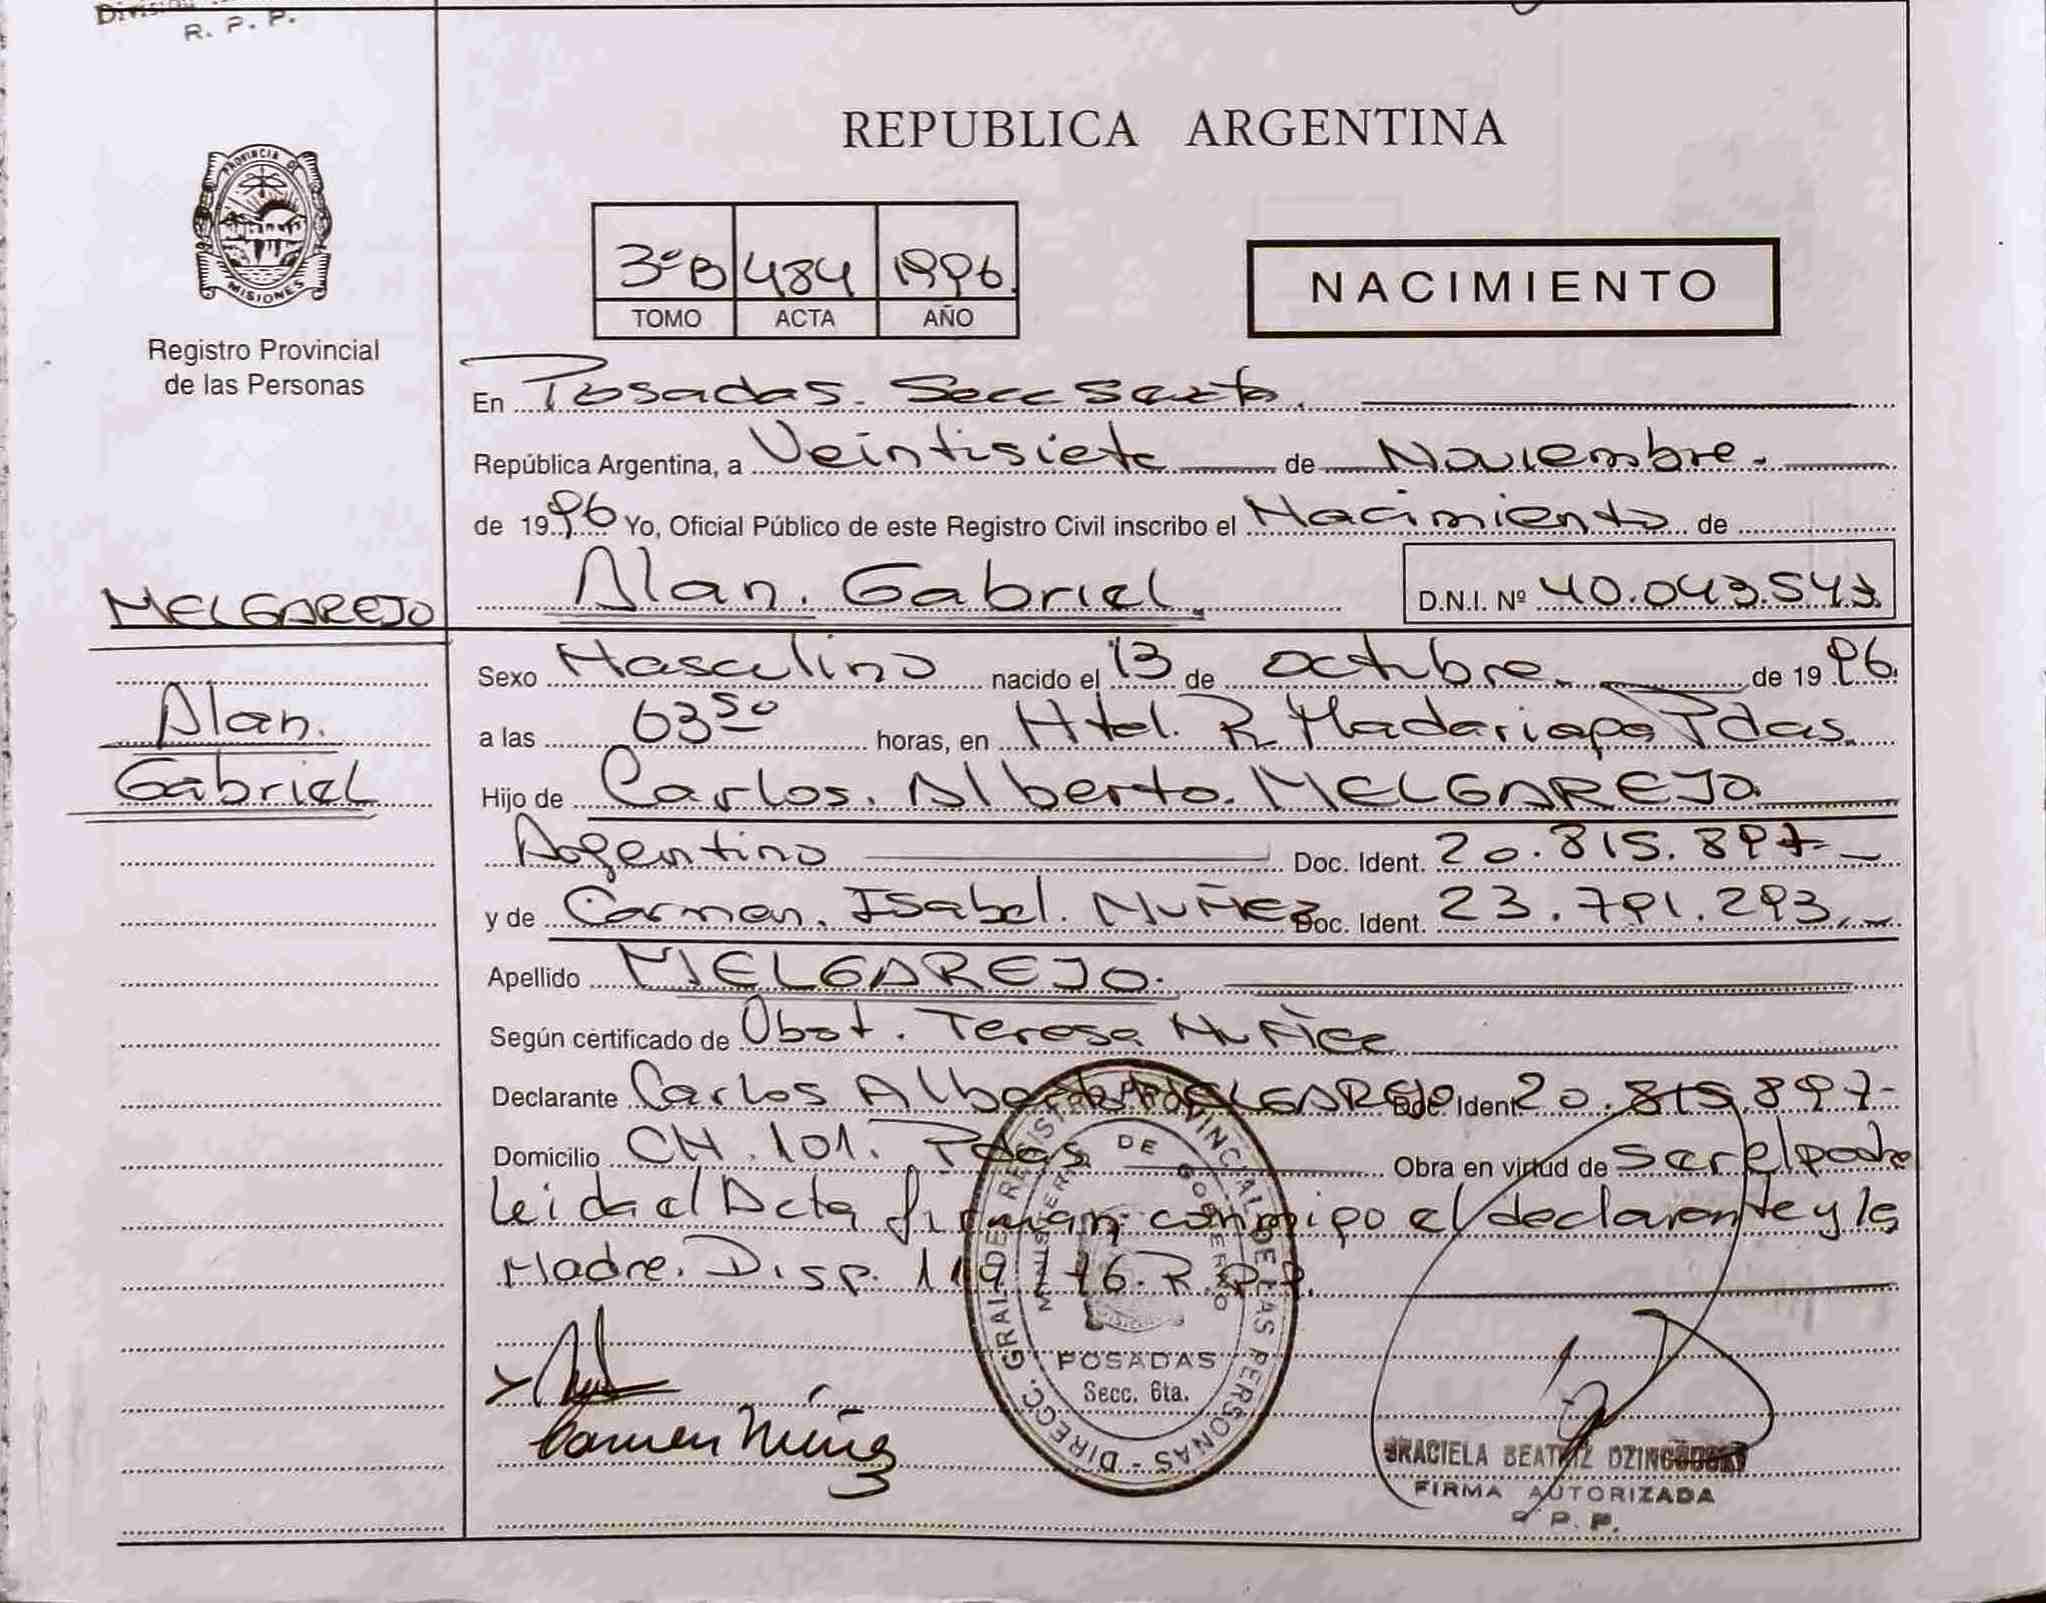 División
R. P. P.
PROVINCIA DE
MISIONES
Registro Provincial
de las Personas
REPUBLICA ARGENTINA
3ºB 484 1996
TOMO ACTA AÑO
NACIMIENTO
En Posadas. Secc Sexta.
República Argentina, a Veintisiete de Noviembre.
de 1996 Yo, Oficial Público de este Registro Civil inscribo el Nacimiento de
Alan. Gabriel. D.N.I. Nº 40.043.543
MELGAREJO
Alan.
Gabriel
Sexo Masculino nacido el 13 de octubre. de 1996.
a las 03 50 horas, en Htal. R Madariaga Pdas.
Hijo de Carlos. Alberto. MELGAREJO
Argentino Doc. Ident. 20.815.897-
y de Carmen. Isabel. NUÑEZ Doc. Ident. 23.791.293.
Apellido MELGAREJO.
Según certificado de Obst. Teresa Nuñez
Declarante Carlos Alberto MELGAREJO Doc. Ident 20.815.897-
Domicilio CH. 101. Pdas Obra en virtud de ser el padre
Leida el Acta firman conmigo el declarante y la
Madre. Disp. 119 R.P.P.
Carmen Núñez
DIRECC. GRAL. DE REGISTRO PROVINCIAL DE LAS PERSONAS
MINISTERIO DE GOBIERNO
POSADAS
Secc. 6ta.
GRACIELA BEATRIZ
FIRMA AUTORIZADA
R. P. P.